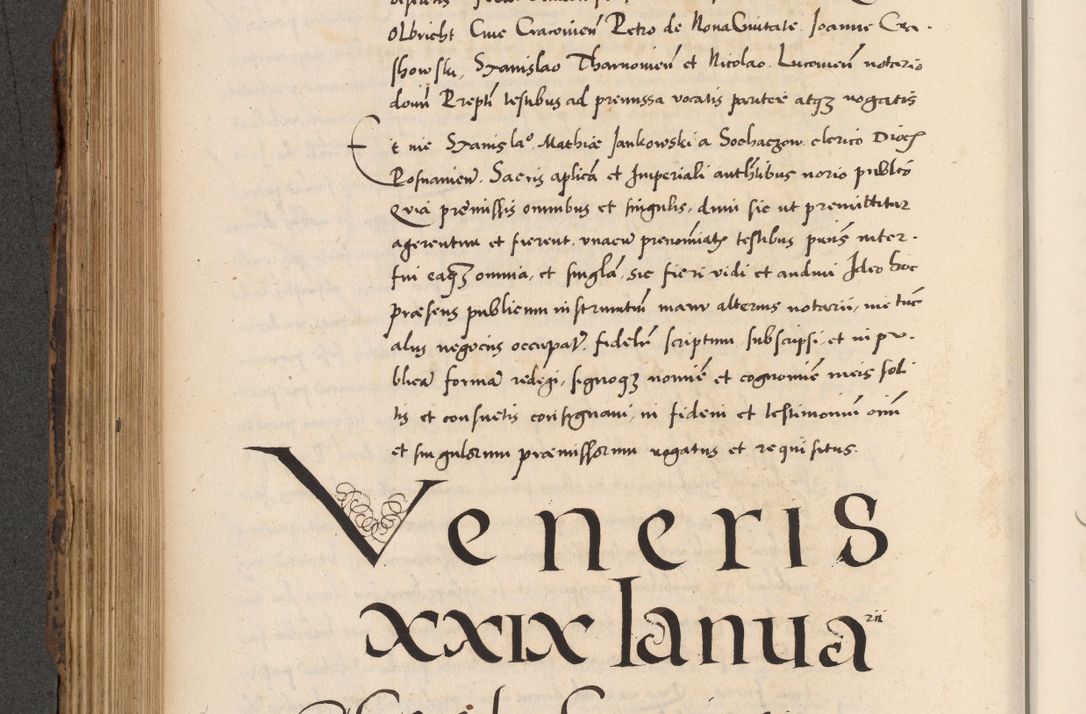 Olbricht Ciue Cracouień Petro de Noua Ciuitate. Joanne Cra-
show ski, Stanislao Tharnouień et Nicolao. Lucouień notario
domi Prepti testibus ad premissa vocatis pariter atqȝ rogatis
Et me Stanislao. Mathiæ Jankowski a Sochaczow clerico Dioc
Posnanien. Sacris aplica et Imperiali authtibus norio publco
Quia premissis omnibus et singulis, dum sic ut premittitur
agerentur et fierent. vnacu prenominatȝ testibus pntis inter-
fui eaqȝ omnia, et singla, sic fieri vidi et audiui Ideo hoc
præsens publicum instrumtum manu alterius notarii, me tuc
aliis negocijs occupat, fidelr scriptum subscripsi, et in pu-
blica forma redegi, signoqȝ nomie et cognomie meis soli
tis et consuetis consignaui, in fidem et testimonium oim
et singulorum præmissorum rogatus et requisitus.
Veneris
XXIX Ianuarii